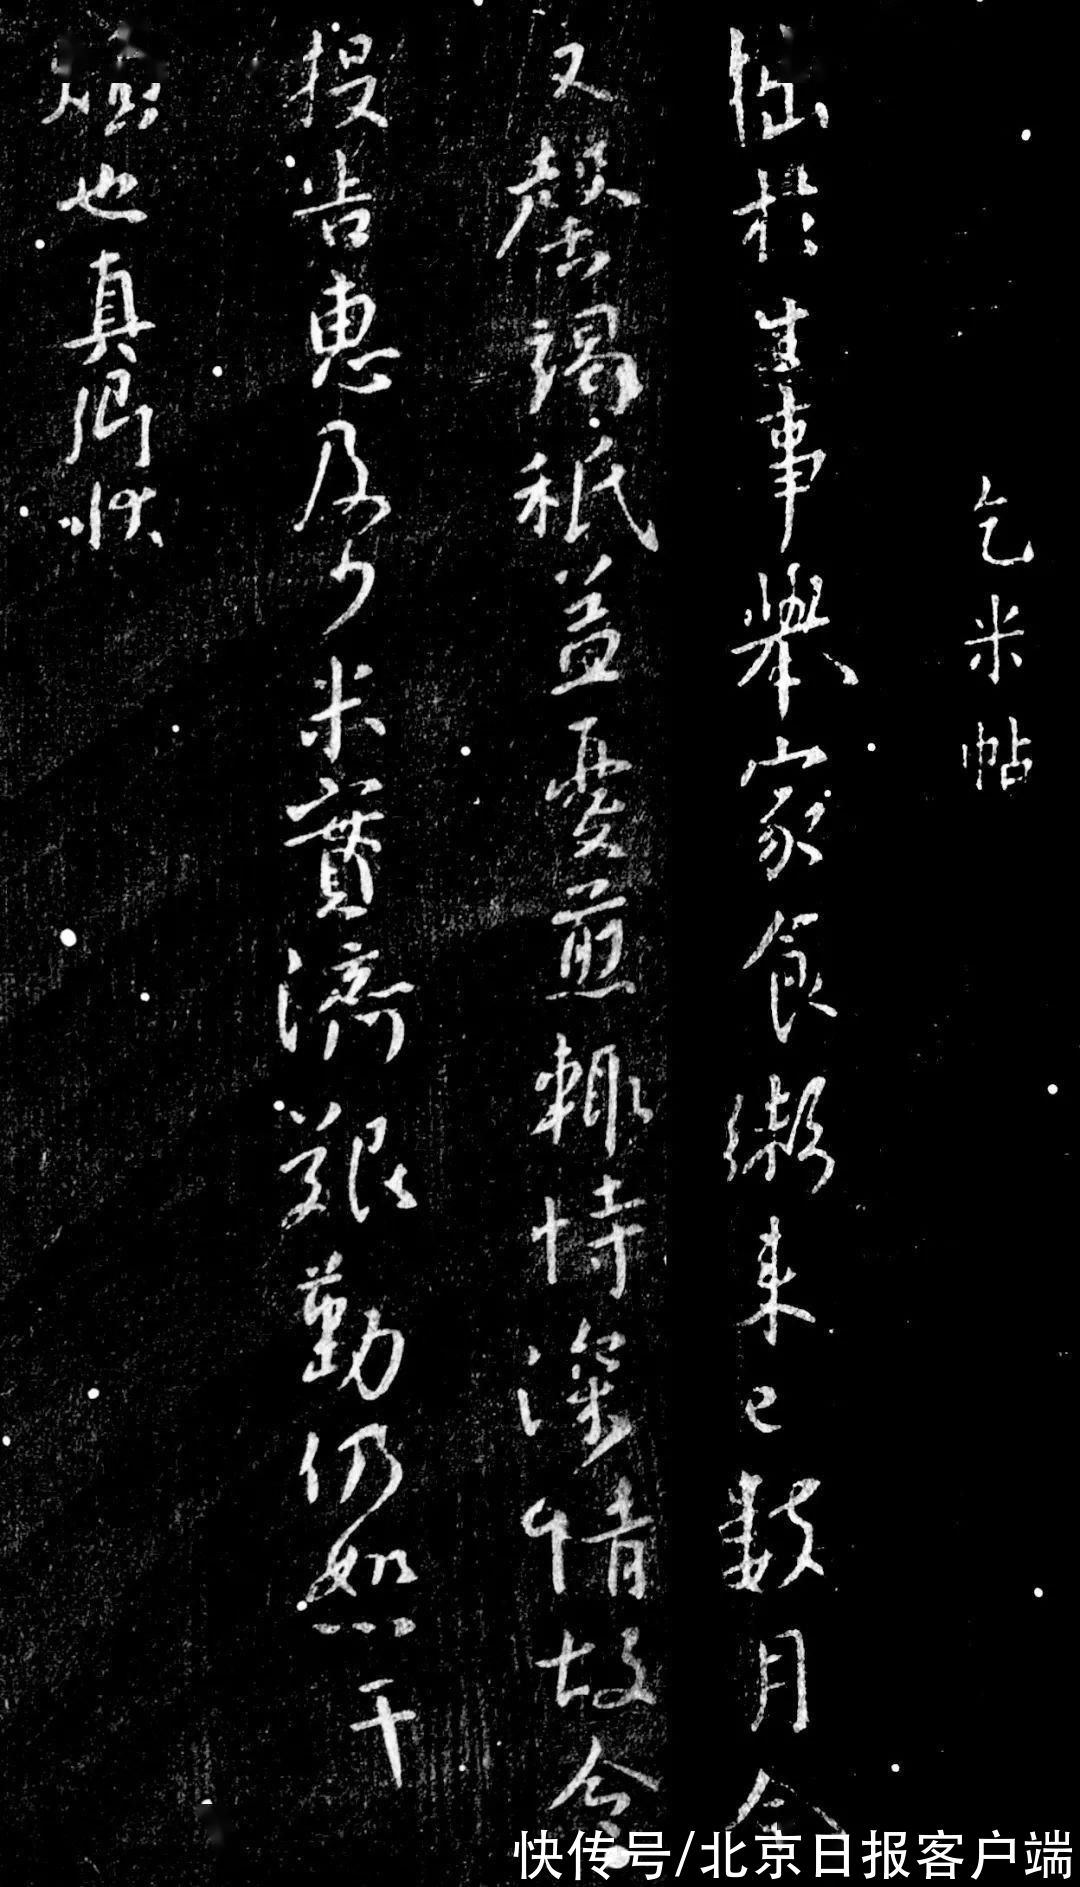 乞米帖
拙於生事舉家食粥來已數月今
又罄竭祗益憂煎輒恃深情故令
投告惠及少米實濟艱勤仍恕干
煩也真卿狀
快传号/北京日报客户端